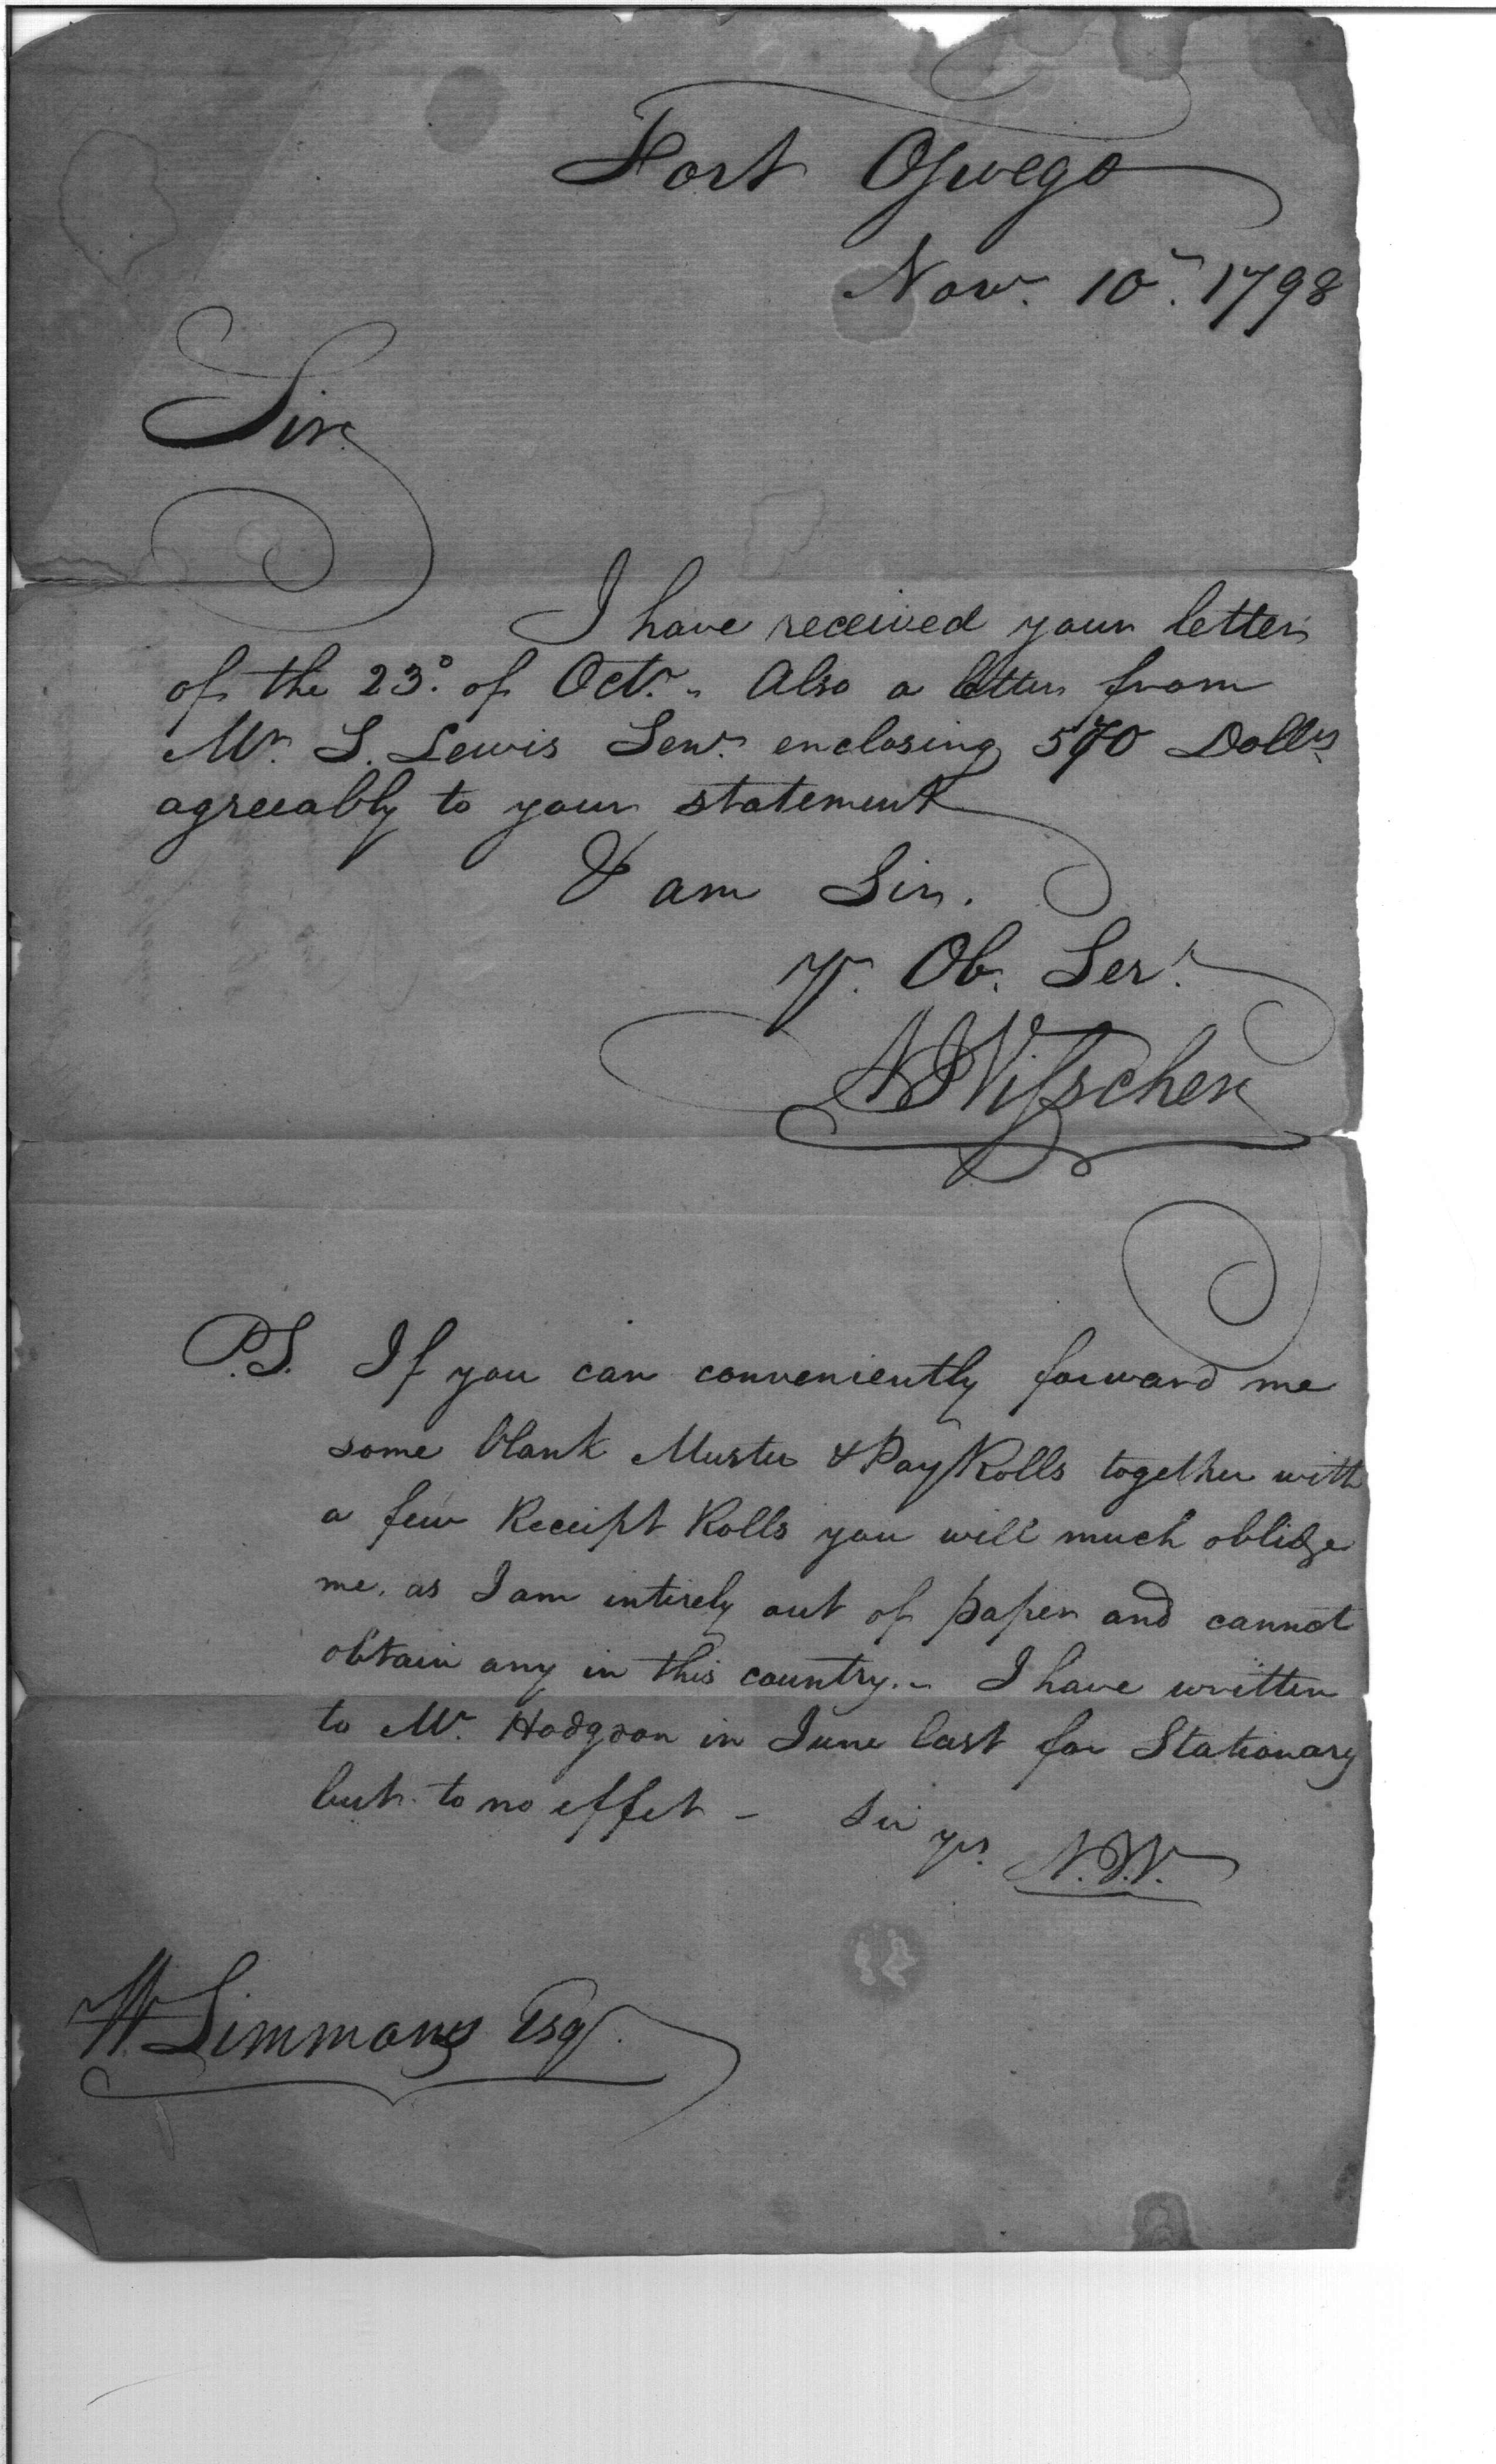 Fort Oswego
Novr. 10th. 1798
Sir
I have received your letter
of the 23d. of Octr. - Also a letter from
Mr. S. Lewis Senr. enclosing 570 Dollrs
agreeably to your statement
I am Sir.
Yr. Ob. Sert.
N J Visscher
P.S. If you can conveniently forward me
some blank Muster & Pay Rolls together with
a few Receipt Rolls you will much oblidge
me, as I am intirely out of paper and cannot
obtain any in this country. - I have written
to Mr. Hodgdon in June last for Stationary
but to no effet - Sir yrs. N.J.V.
W Simmons Esqr.